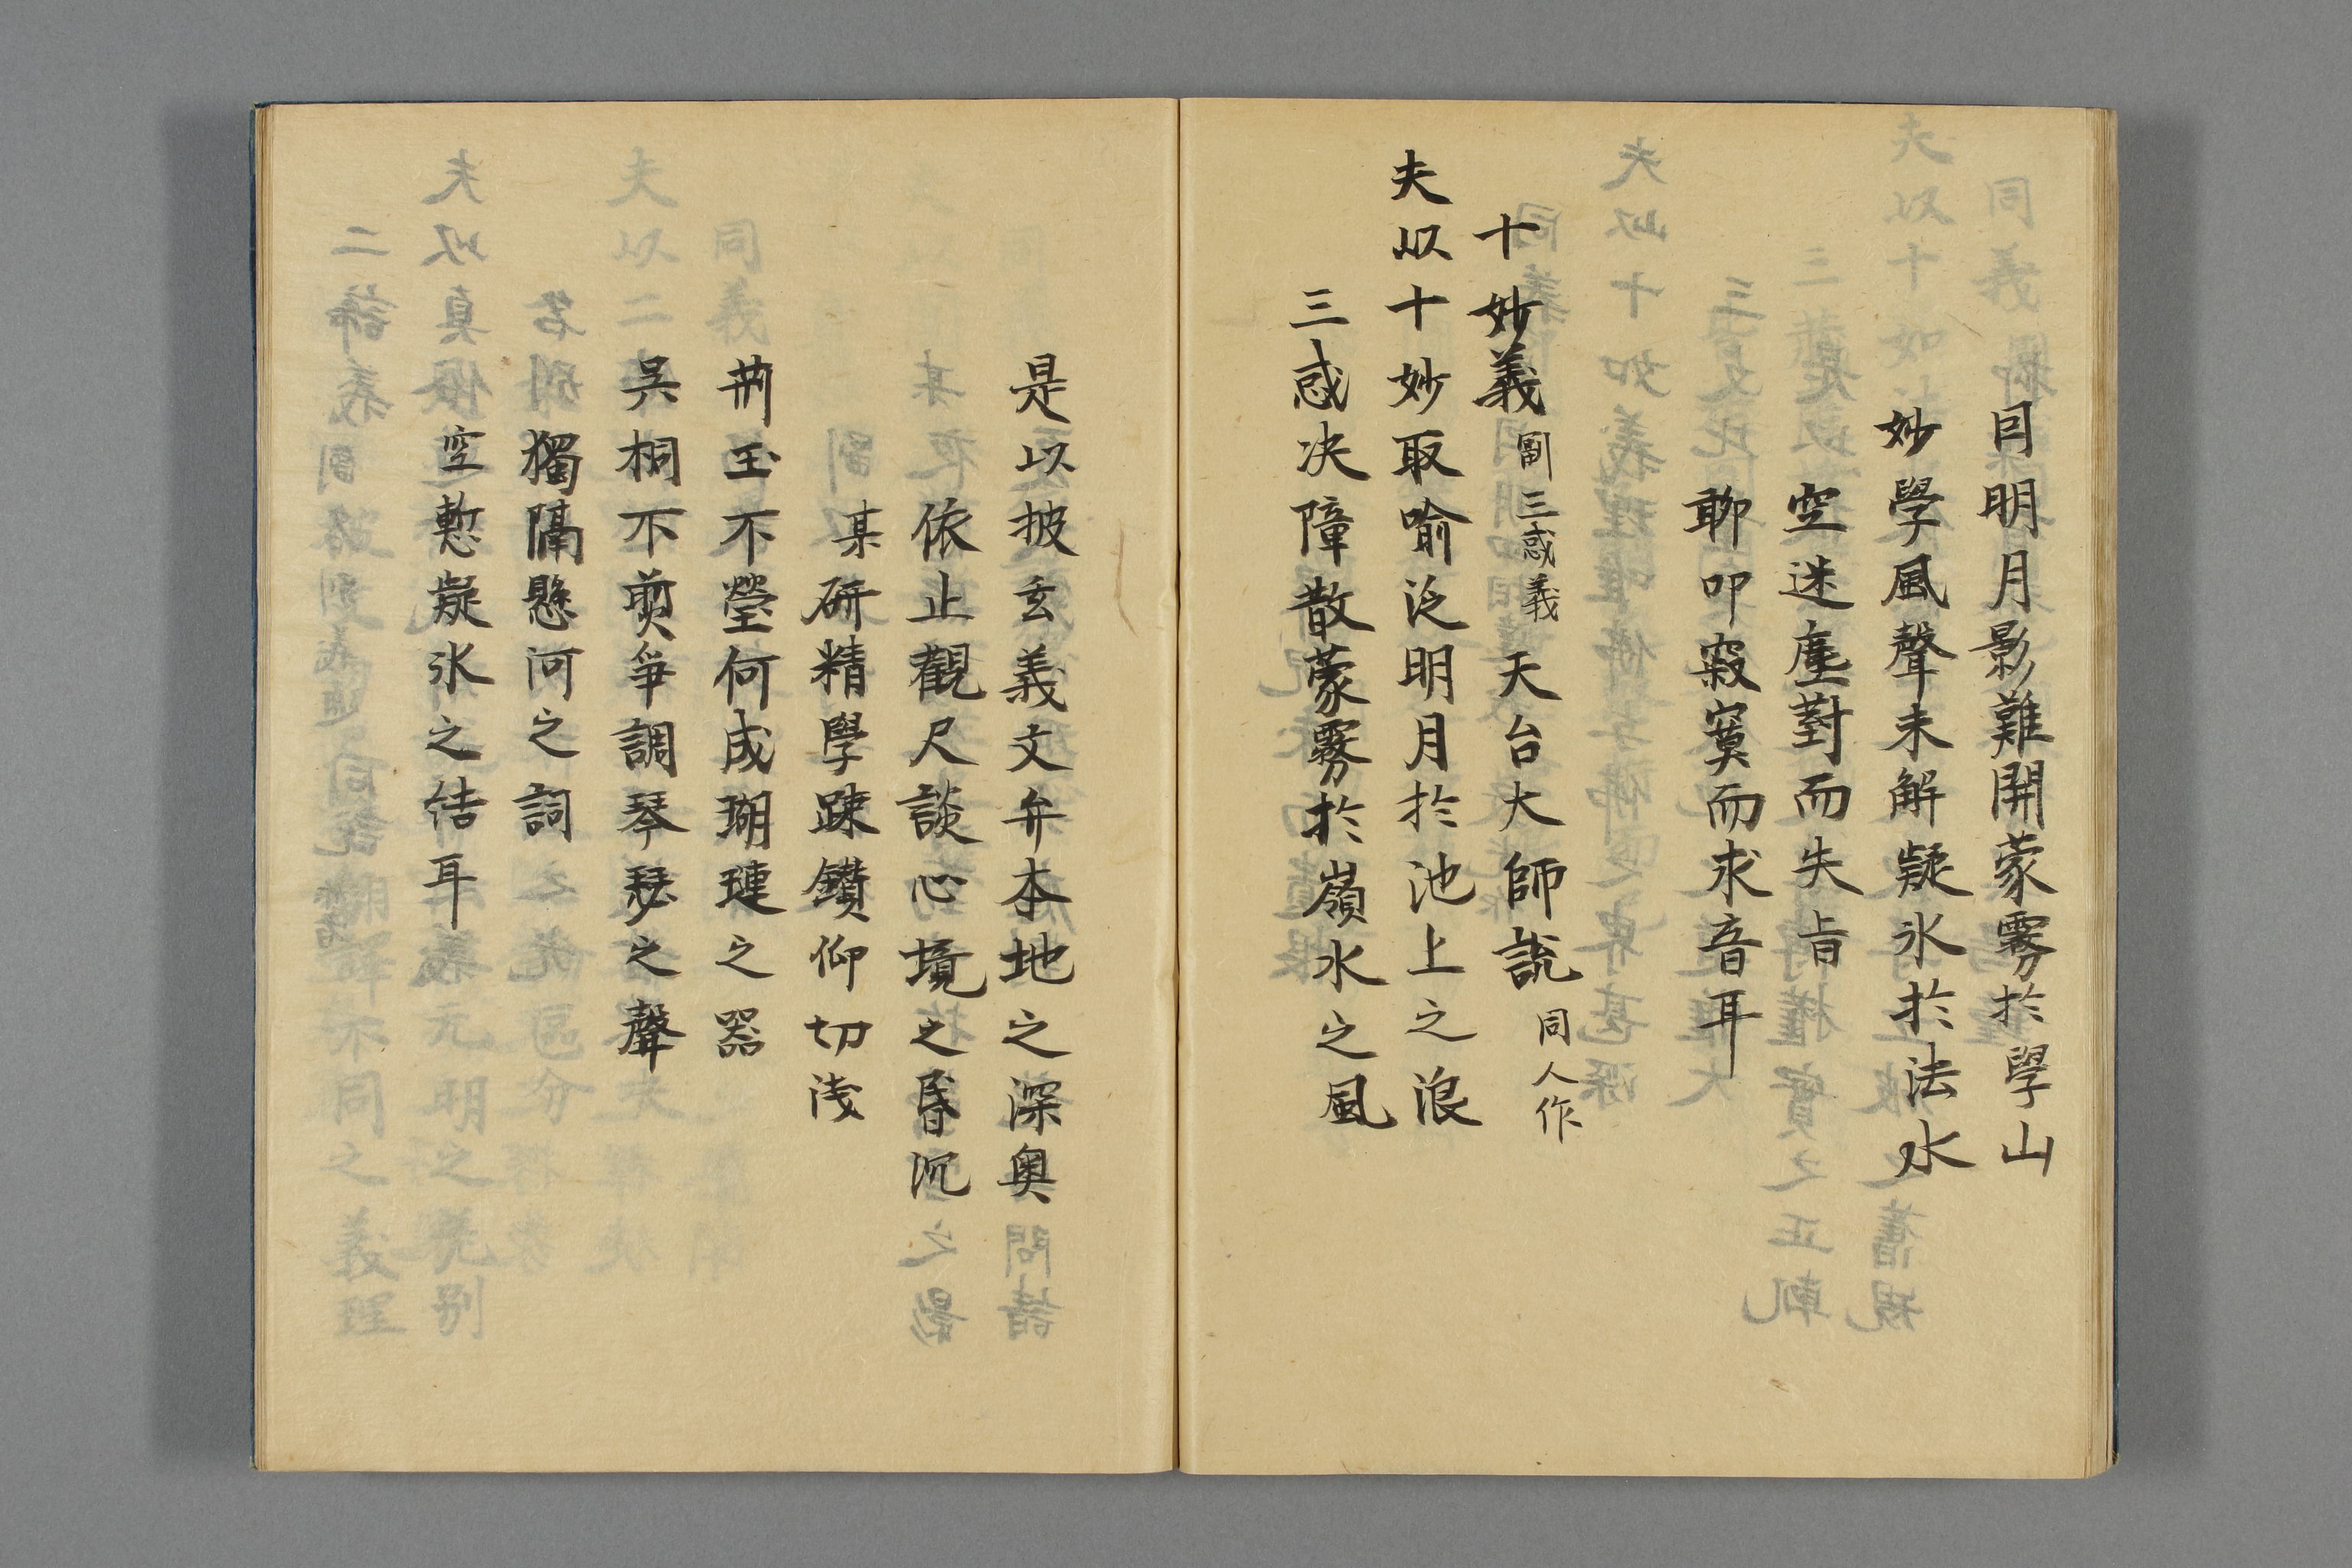 因明月影難開蒙霧於學山
妙學風聲未解疑氷於法水
空迷塵對而失旨
聊叩寂寞而求音耳
十妙義 副三惑義 天台大師説 同人作
夫以十妙取喻泛明月於池上之浪
三惑决障散蒙霧於嶺水之風
是以披玄義文弁本地之深奥
依止觀尺談心境之昏沉
某研精學踈鑚仰切浅
荊玉不瑩何成瑚璉之器
吴桐不剪争調琴瑟之聲
獨隔懸河之詞
空慙凝氷之結耳